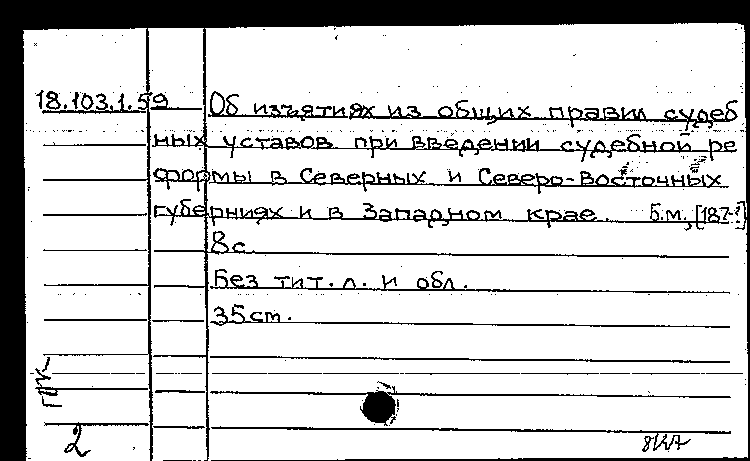 18.103.1.59 Об изъятиях из общих правил судеб
ных уставов при введении судебной ре
формы в Северных и Северо-Восточных
губерниях и в Западном крае. Б.м., [187-?]
8с.
Без тит. л. и обл.
35ст.
2